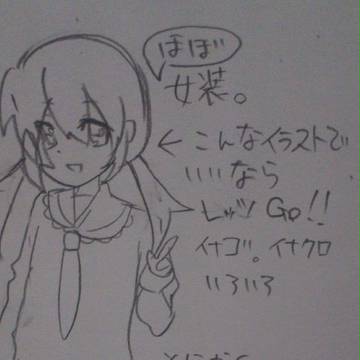 ほぼ
女装。
← こんなイラストで
いいなら
レッツ Go!!
イナゴ。イナクロ
いろいろ